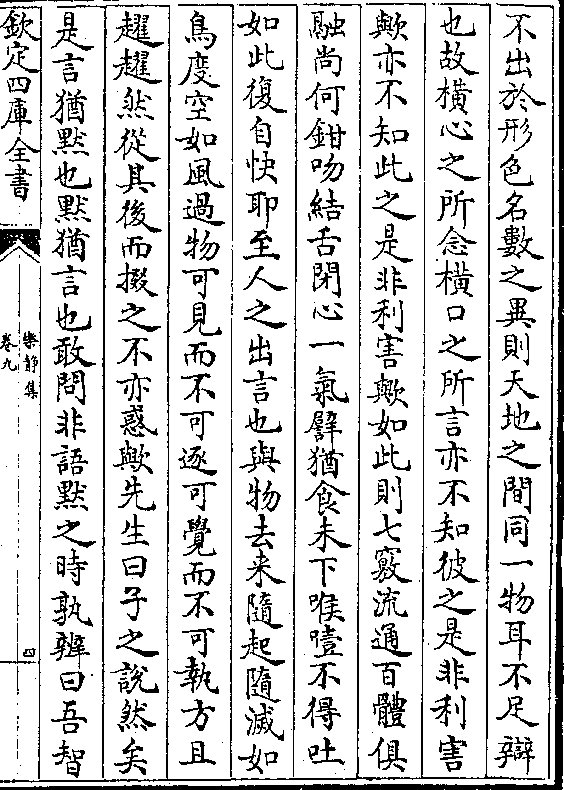 不出於形色名數之異則天地之間同一物耳不足辯
也故橫心之所念橫口之所言亦不知彼之是非利害
歟亦不知此之是非利害歟如此則七竅流通百體俱
融尚何鉗吻結舌閉心一氣譬猶食未下喉噎不得吐
如此復自快耶至人之出言也與物去来隨起隨滅如
鳥度空如風過物可見而不可逐可覺而不可執方且
趯趯然從其後而掇之不亦惑歟先生曰子之說然矣
是言猶默也默猶言也敢問非語默之時孰辨曰吾智
欽定四庫全書
樂靜集
卷九
四